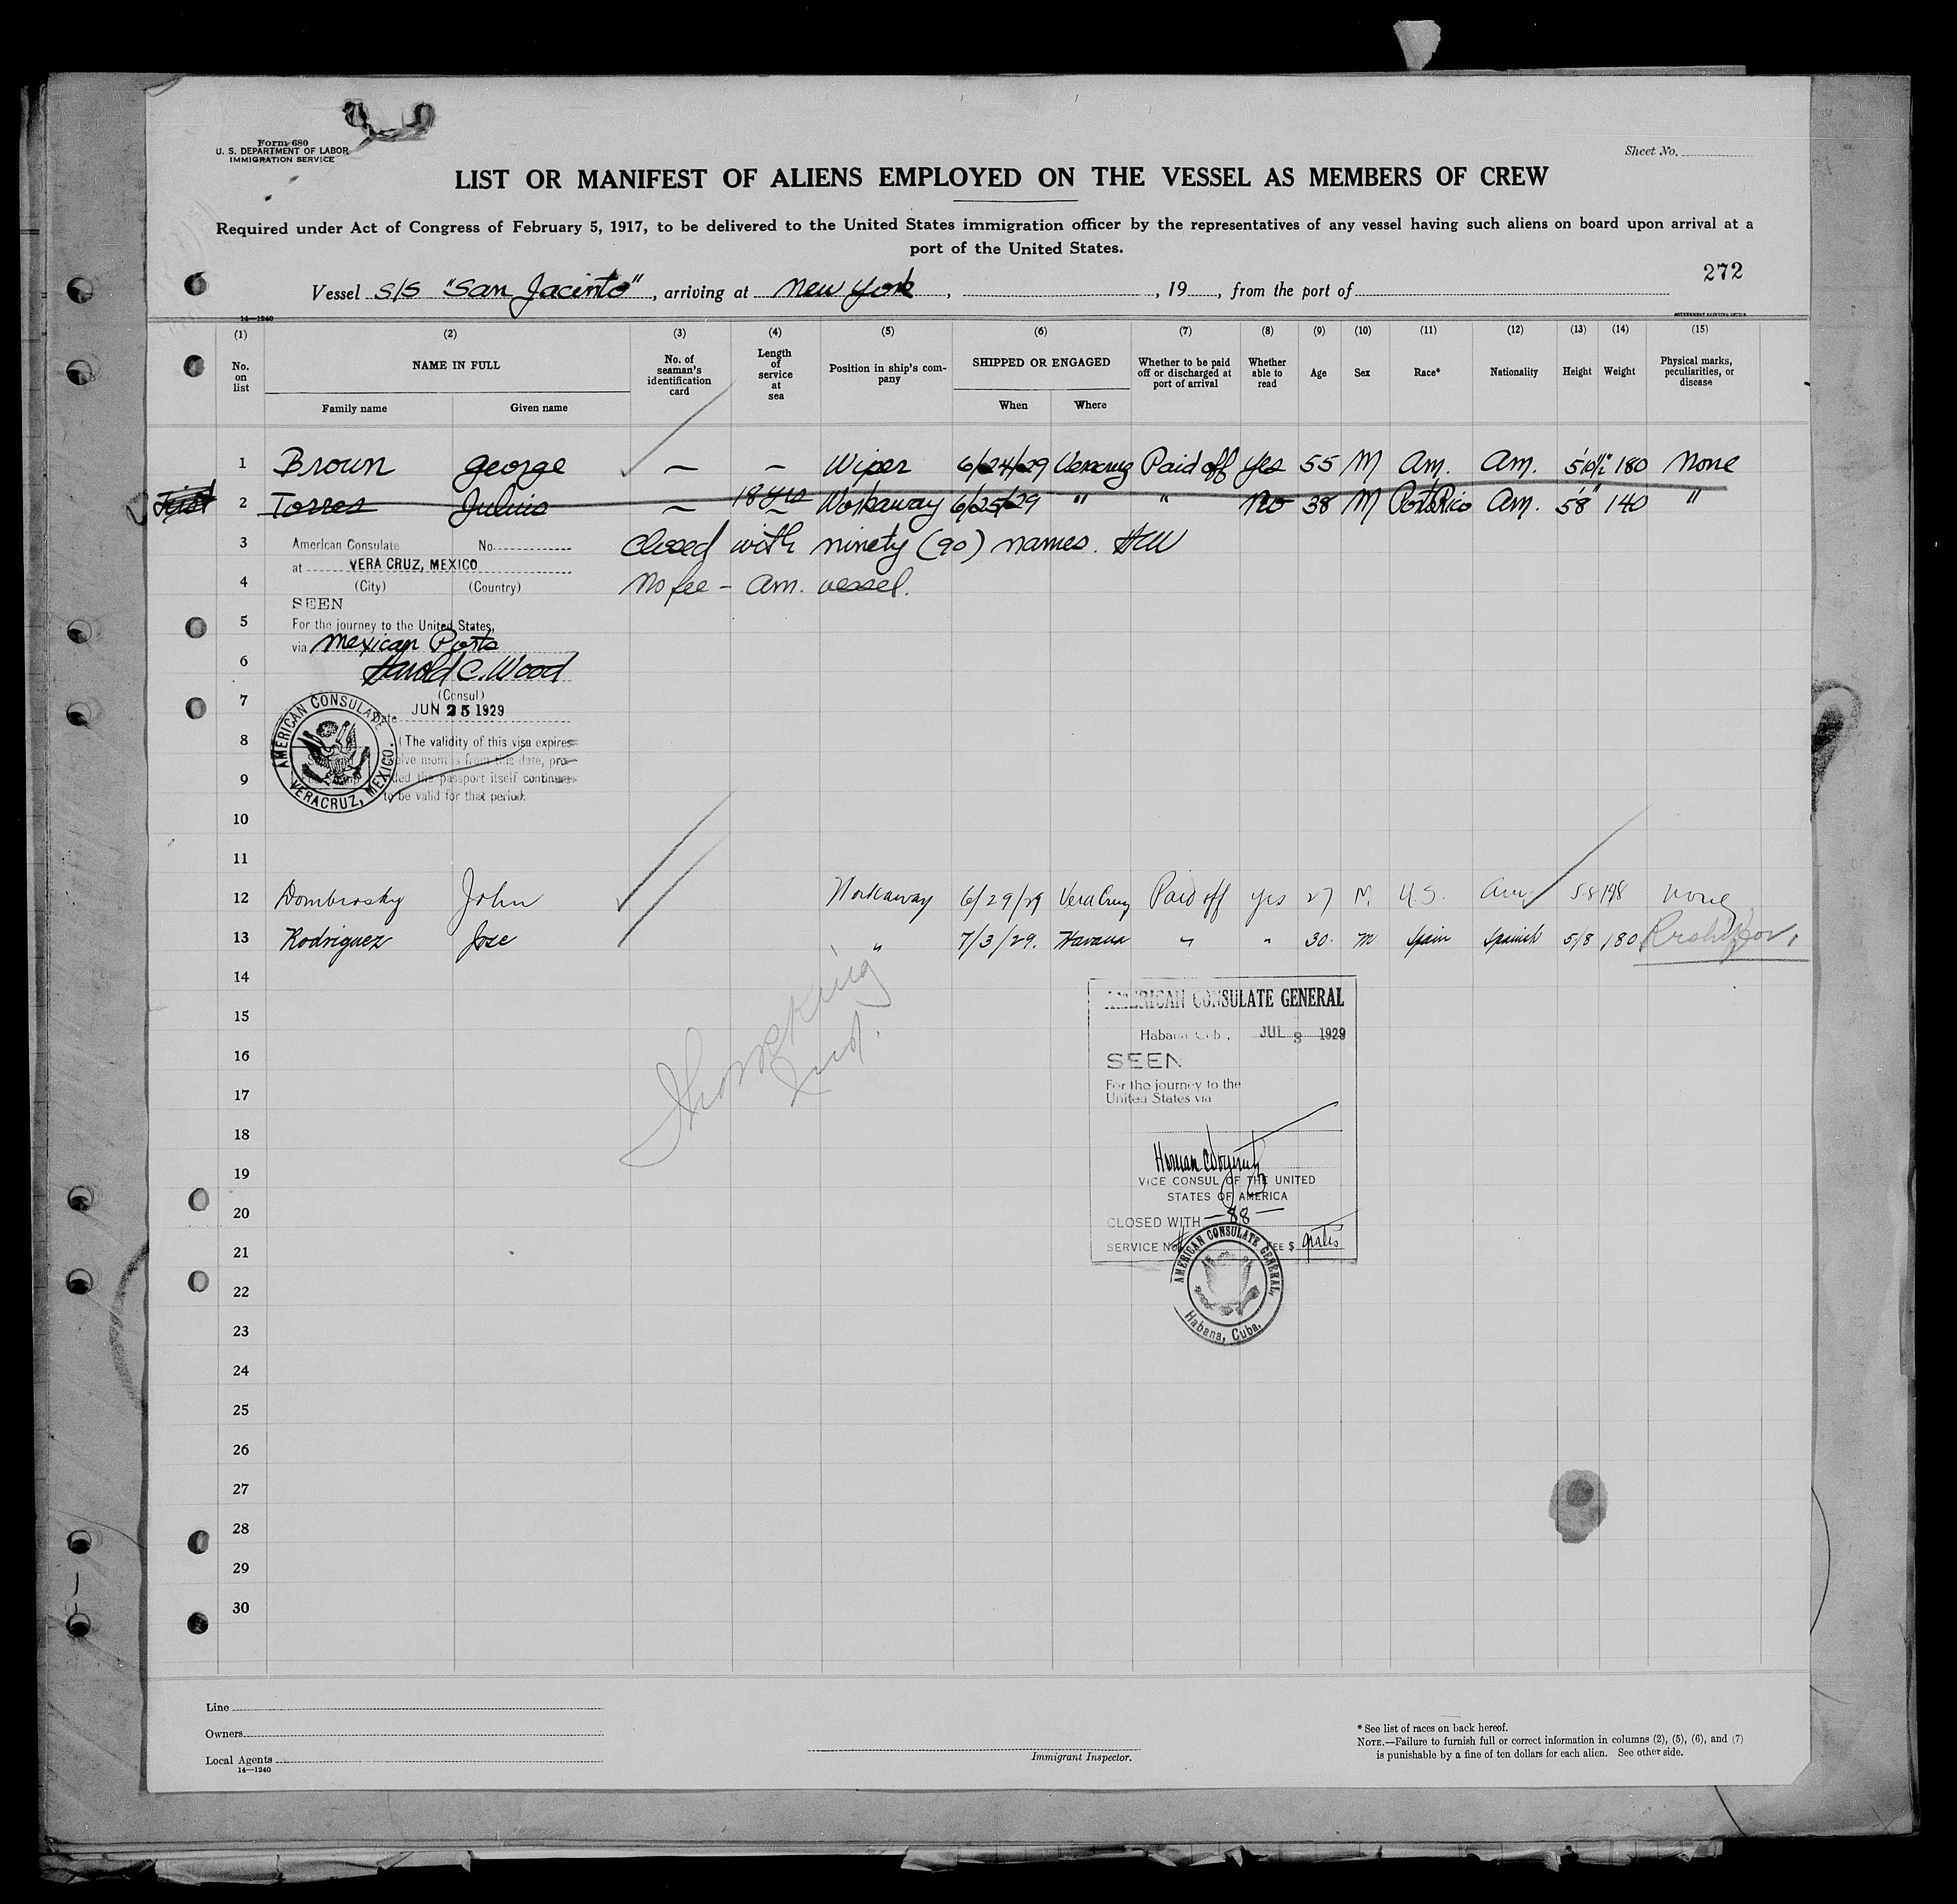 Form 680
U. S. DEPARTMENT OF LABOR
IMMIGRATION SERVICE
Sheet No.
LIST OR MANIFEST OF ALIENS EMPLOYED ON THE VESSEL AS MEMBERS OF CREW
Required under Act of Congress of February 5, 1917, to be delivered to the United States immigration officer by the representatives of any vessel having such aliens on board upon arrival at a
port of the United States.
272
Vessel S/S "San Jacinto", arriving at New York, , 19 , from the port of
14—1240 GOVERNMENT PRINTING OFFICE
(1) (2) (3) (4) (5) (6) (7) (8) (9) (10) (11) (12) (13) (14) (15)
No. on list NAME IN FULL Family name Given name No. of seaman's identification card Length of service at sea Position in ship's company SHIPPED OR ENGAGED When Where Whether to be paid off or discharged at port of arrival Whether able to read Age Sex Race* Nationality Height Weight Physical marks, peculiarities, or disease
1 Brown George — — Wiper 6/24/29 Veracruz Paid off yes 55 M Am. Am. 5'10½" 180 None
2 Torres Julius — 18 yrs Workaway 6/25/29 " " No 38 M Porto Rico Am. 5'8" 140 "
3 Closed with ninety (90) names. HCW
American Consulate No.
at VERA CRUZ, MEXICO
4 No fee - Am. vessel.
(City) (Country)
SEEN
5 For the journey to the United States,
via Mexican Ports
6 Harold C. Wood
7 (Consul)
Date JUN 25 1929
AMERICAN CONSULATE VERACRUZ, MEXICO.
8 (The validity of this visa expires
twelve months from this date, pro-
9 vided the passport itself continues
to be valid for that period.
10
11
12 Dombrosky John Workaway 6/29/29 Vera Cruz Paid off yes 27 M. U.S. Am. 5 8 148 none
13 Rodriguez Jose " 7/3/29. Havana " " 30. M Spain Spanish 5/8 180
14
AMERICAN CONSULATE GENERAL
15
Habana, Cuba, JUL 3 1929
16
SEEN
17 For the journey to the
United States via
18
19
VICE CONSUL OF THE UNITED
STATES OF AMERICA
20
CLOSED WITH — 88 —
21 SERVICE No. FEE $ gratis
AMERICAN CONSULATE GENERAL, Habana, Cuba.
22
23
24
25
26
27
28
29
30
Line
Owners
Local Agents
14—1240
Immigrant Inspector.
* See list of races on back hereof.
NOTE.—Failure to furnish full or correct information in columns (2), (5), (6), and (7)
is punishable by a fine of ten dollars for each alien. See other side.